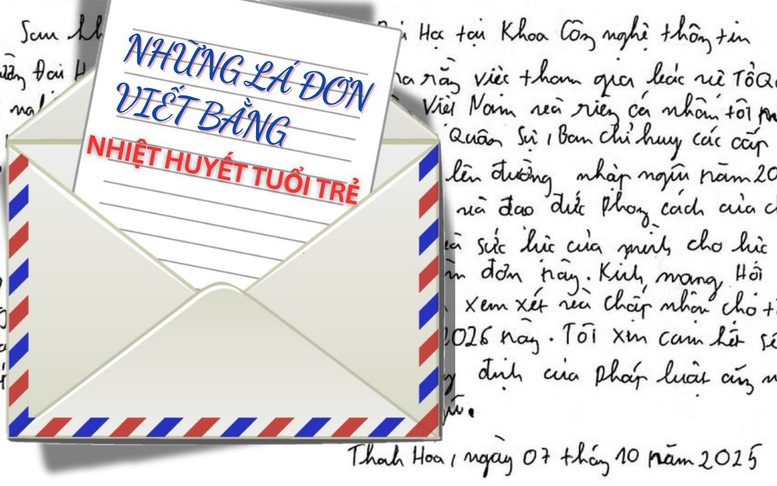 NHỮNG LÁ ĐƠN
VIẾT BẰNG
NHIỆT HUYẾT TUỔI TRẺ
Sau
Học tại Khoa Công nghệ thông tin
rằng việc tham gia bảo vệ Tổ Qu
Việt Nam và riêng cá nhân tôi
Quân Sự, Ban chỉ huy các cấp
lên đường nhập ngũ năm 20
và đạo đức phong cách của
sức lực của mình cho lực
đơn này. Kính mong Hội
xem xét và chấp nhận cho
2026 này. Tôi xin cam kết
định của pháp luật cũng
Thanh Hoa, ngày 07 tháng 10 năm 2025